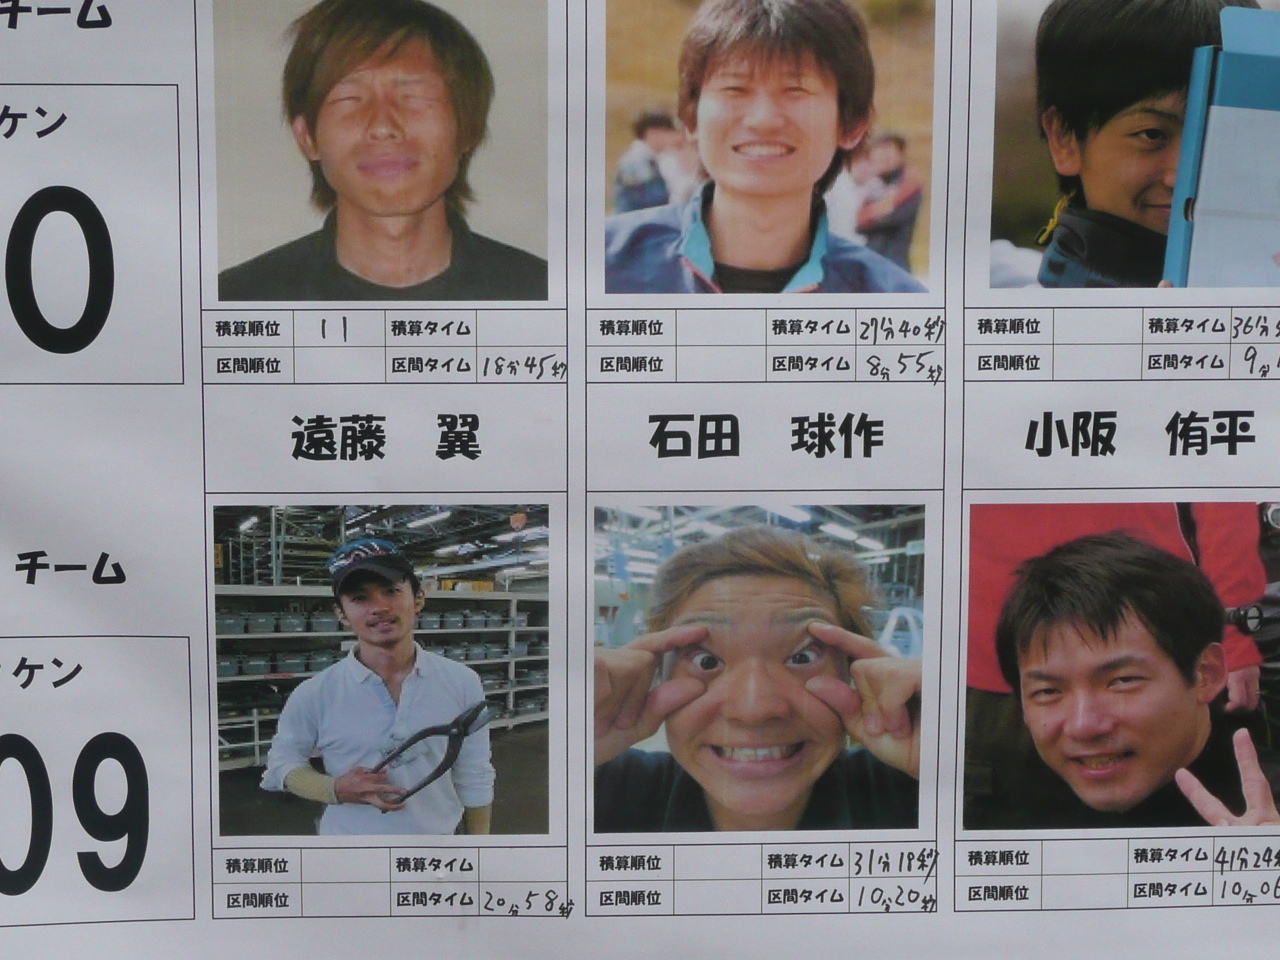 チーム
ケン
0
積算順位 11 積算タイム
区間順位 区間タイム 18分45秒
積算順位 積算タイム 27分40秒
区間順位 区間タイム 8分55秒
積算順位 積算タイム 36分
区間順位 区間タイム 9分
遠藤 翼
石田 球作
小阪 侑平
チーム
ケン
09
積算順位 積算タイム
区間順位 区間タイム 20分58秒
積算順位 積算タイム 31分18秒
区間順位 区間タイム 10分20秒
積算順位 積算タイム 41分24秒
区間順位 区間タイム 10分06